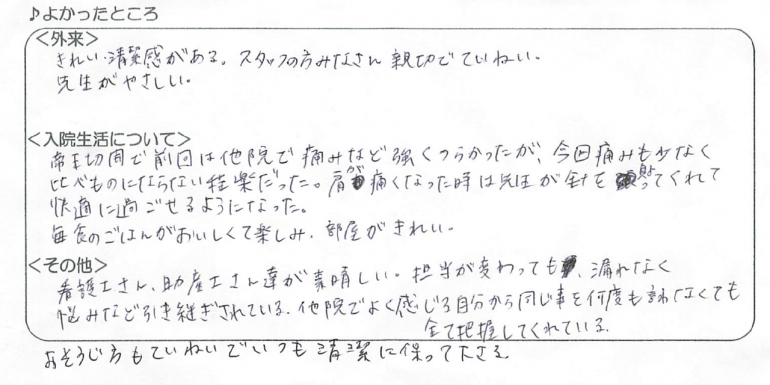 ♪よかったところ
<外来>
きれい・清潔感がある。スタッフの方みなさん親切でていねい。
先生がやさしい。
<入院生活について>
帝王切開で前回は他院で痛みなど強くつらかったが、今回痛みも少なく
比べものにならない程楽だった。肩が痛くなった時は先生が針を貼ってくれて
快適に過ごせるようになった。
毎食のごはんがおいしくて楽しみ、部屋がきれい。
<その他>
看護士さん、助産士さん達が素晴しい。担当が変わっても、漏れなく
悩みなど引き継ぎされている。他院でよく感じる自分から同じ事を何度も言わなくても
全て把握してくれている。
おそうじ方もていねいでいつも清潔に保って下さる。